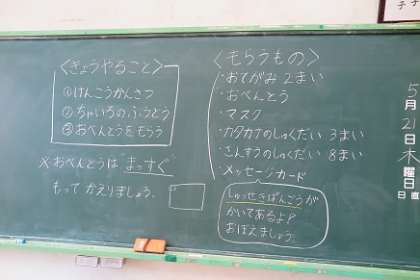 <きょうやること>
①けんこうかんさつ
②ちゃいろのふうとう
③おべんとうをもらう
※おべんとうは まっすぐ
もって かえりましょう。
<もらうもの>
・おてがみ 2まい
・おべんとう
・マスク
・カタカナのしゅくだい 3まい
・さんすうのしゅくだい 8まい
・メッセージカード
しゅっせきばんごうが
かいてあるよ!
おぼえましょう。
5月21日木曜日
日直